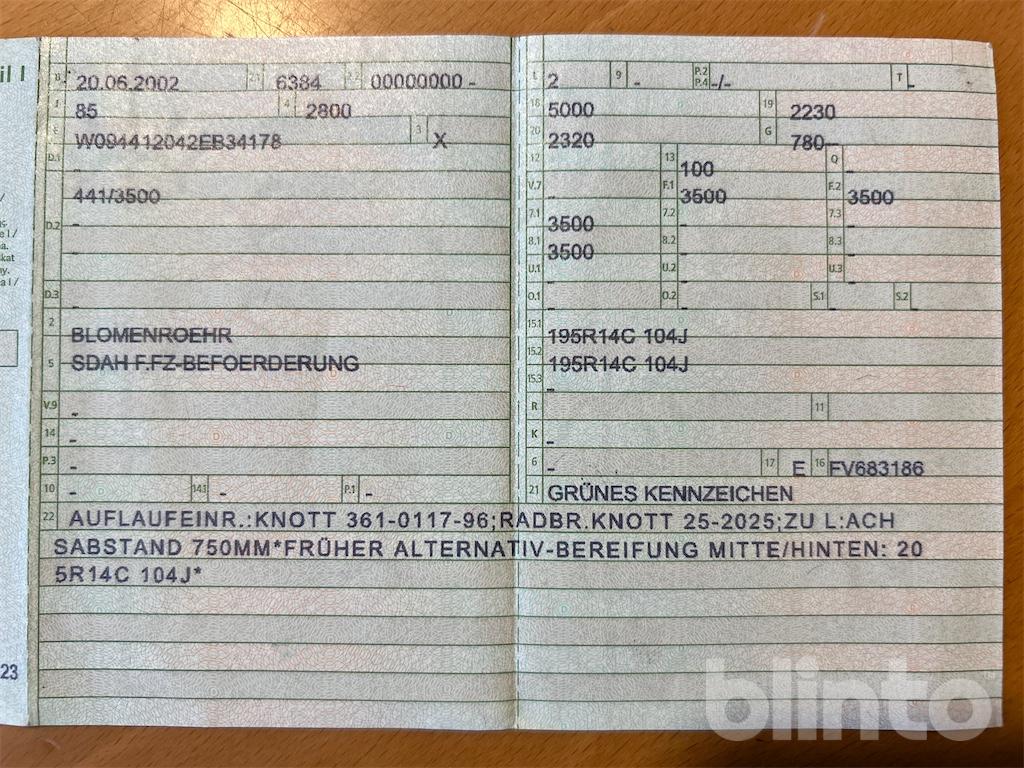 il I
B 20.06.2002 2.1 6384 2.2 00000000 -
J 85 4 2800
E W094412042EB34178 3 X
D.1 -
441/3500
D.2 -
-
D.3 -
2 BLOMENROEHR
5 SDAH F.FZ-BEFOERDERUNG
V.9 -
14 -
P.3 -
10 - 14.1 - P.1 -
L 2 9 - P.2 P.4 -/- T -
18 5000 19 2230
20 2320 G 780-
12 - 13 100 Q -
V.7 - F.1 3500 F.2 3500
7.1 3500 7.2 - 7.3 -
8.1 3500 8.2 - 8.3 -
U.1 - U.2 - U.3 -
O.1 - O.2 - S.1 - S.2 -
15.1 195R14C 104J
15.2 195R14C 104J
15.3 -
R - 11
K -
6 - 17 E 16 FV683186
21 GRÜNES KENNZEICHEN
22 AUFLAUFEINR.:KNOTT 361-0117-96;RADBR.KNOTT 25-2025;ZU L:ACH
SABSTAND 750MM*FRÜHER ALTERNATIV-BEREIFUNG MITTE/HINTEN: 20
5R14C 104J*
23
blinto